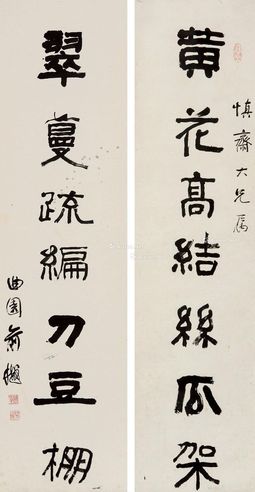 慎齋大兄属
黄花高結絲瓜架
翠蔓疏編刀豆棚
曲園俞樾